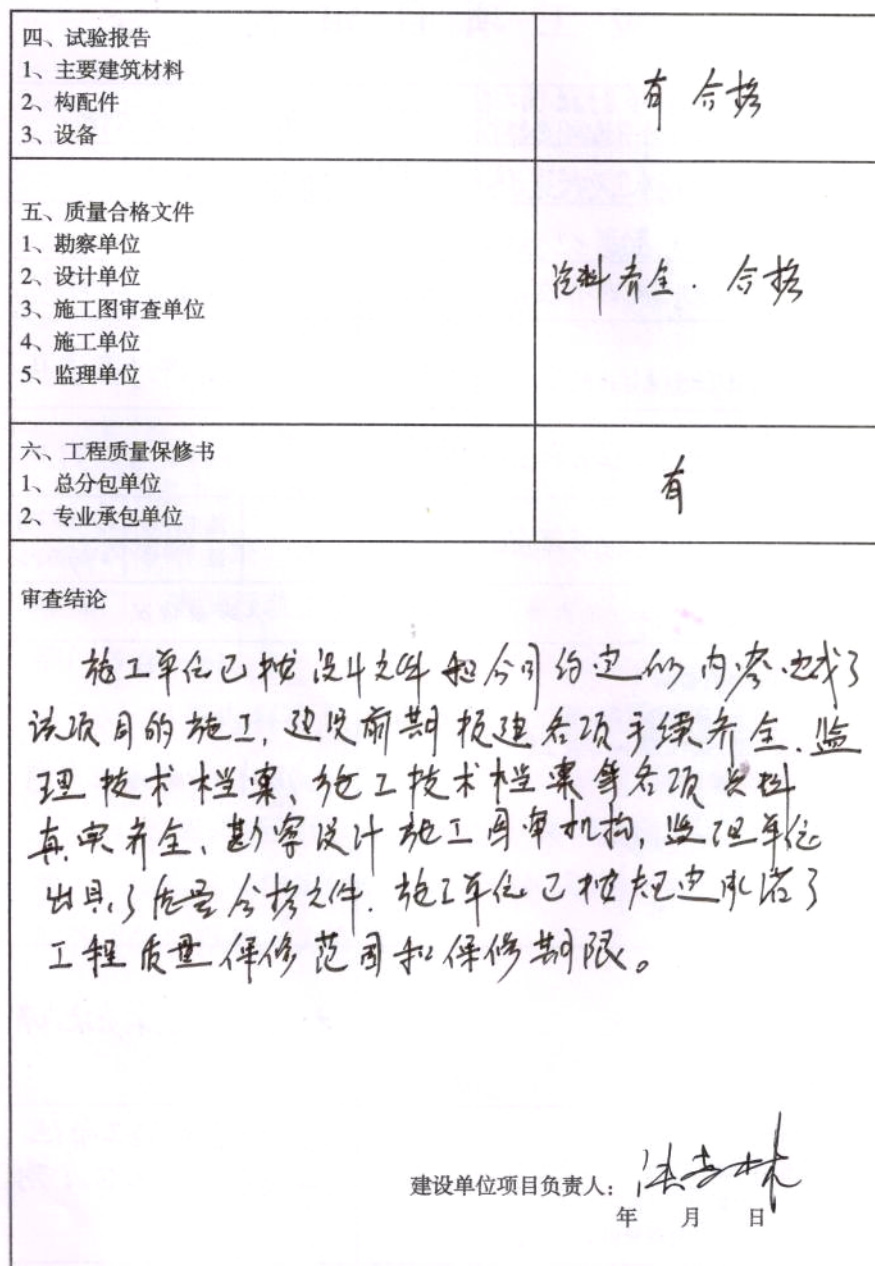 四、试验报告
1、主要建筑材料
2、构配件
3、设备
有 合格
五、质量合格文件
1、勘察单位
2、设计单位
3、施工图审查单位
4、施工单位
5、监理单位
资料齐全. 合格
六、工程质量保修书
1、总分包单位
2、专业承包单位
有
审查结论
施工单位已按设计文件和合同约定的内容完成了
该项目的施工, 建设前期报建各项手续齐全. 监
理技术档案、施工技术档案等各项资料
真实齐全、勘察设计施工图审机构, 监理单位
出具了质量合格文件. 施工单位已按规定承诺了
工程质量保修范围和保修期限。
建设单位项目负责人:
年 月 日